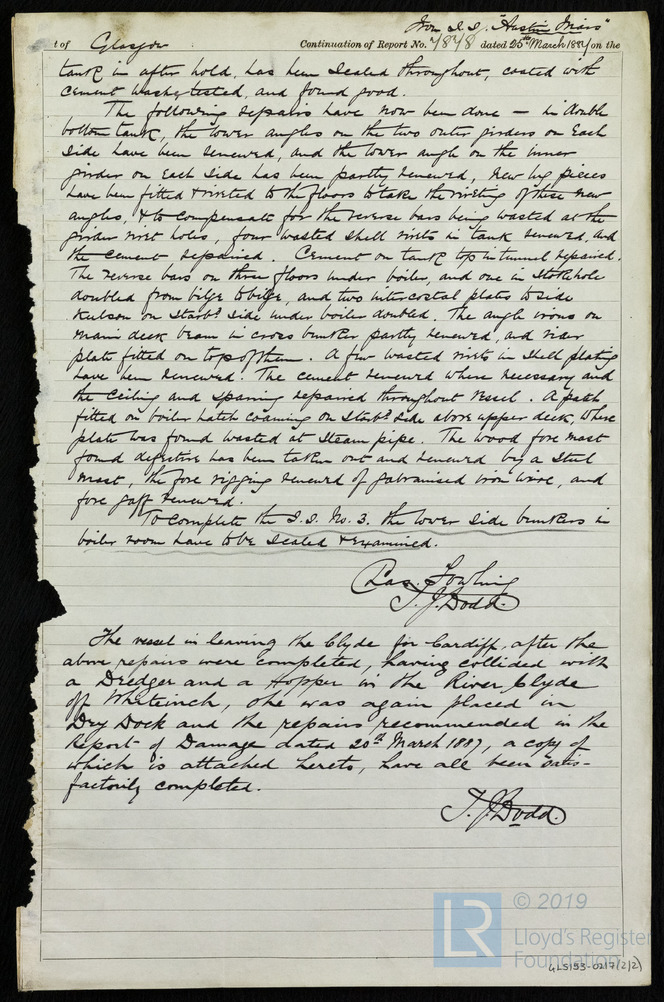 Iron S.S. "Austin Friars"
t of Glasgow Continuation of Report No. 7848 dated 25th March 1887 on the
tank in after hold, has been scaled throughout, coated with
cement wash, tested, and found good.
The following repairs have now been done — in double
bottom tank, the lower angles on the two outer girders on each
side have been renewed, and the lower angle on the inner
girder on each side has been partly renewed, new lug pieces
have been fitted & riveted to the floors to take the riveting of these new
angles, & to compensate for the reverse bars being wasted at the
girder rivet holes, four wasted shell rivets in tank renewed, and
the cement repaired. Cement on tank top in tunnel repaired.
The reverse bars on three floors under boiler, and one in stokehole
doubled from bilge to bilge, and two intercostal plates to side
keelson on starbd side under boiler doubled. The angle irons on
main deck beam in cross bunker partly renewed, and rider
plate fitted on top of them. A few wasted rivets in shell plating
have been renewed. The cement renewed where necessary and
the ceiling and sparring repaired throughout vessel. A patch
fitted on boiler hatch coaming on starbd side above upper deck, where
plate was found wasted at steam pipe. The wood fore mast
found defective has been taken out and renewed by a steel
mast, the fore rigging renewed of galvanised iron wire, and
fore gaff renewed.
To complete the S.S. No. 3. the lower side bunkers in
boiler room have to be scaled & examined.
Chas. Fowling
T. J. Dodd.
The vessel in leaving the Clyde for Cardiff, after the
above repairs were completed, having collided with
a Dredger and a Hopper in the River Clyde
off Whiteinch, she was again placed in
Dry Dock and the repairs recommended in the
Report of Damage dated 20th March 1887, a copy of
which is attached hereto, have all been satis-
factorily completed.
T. J. Dodd.
LR © 2019
Lloyd's Register
Foundation
GLS153-0217(2/2)